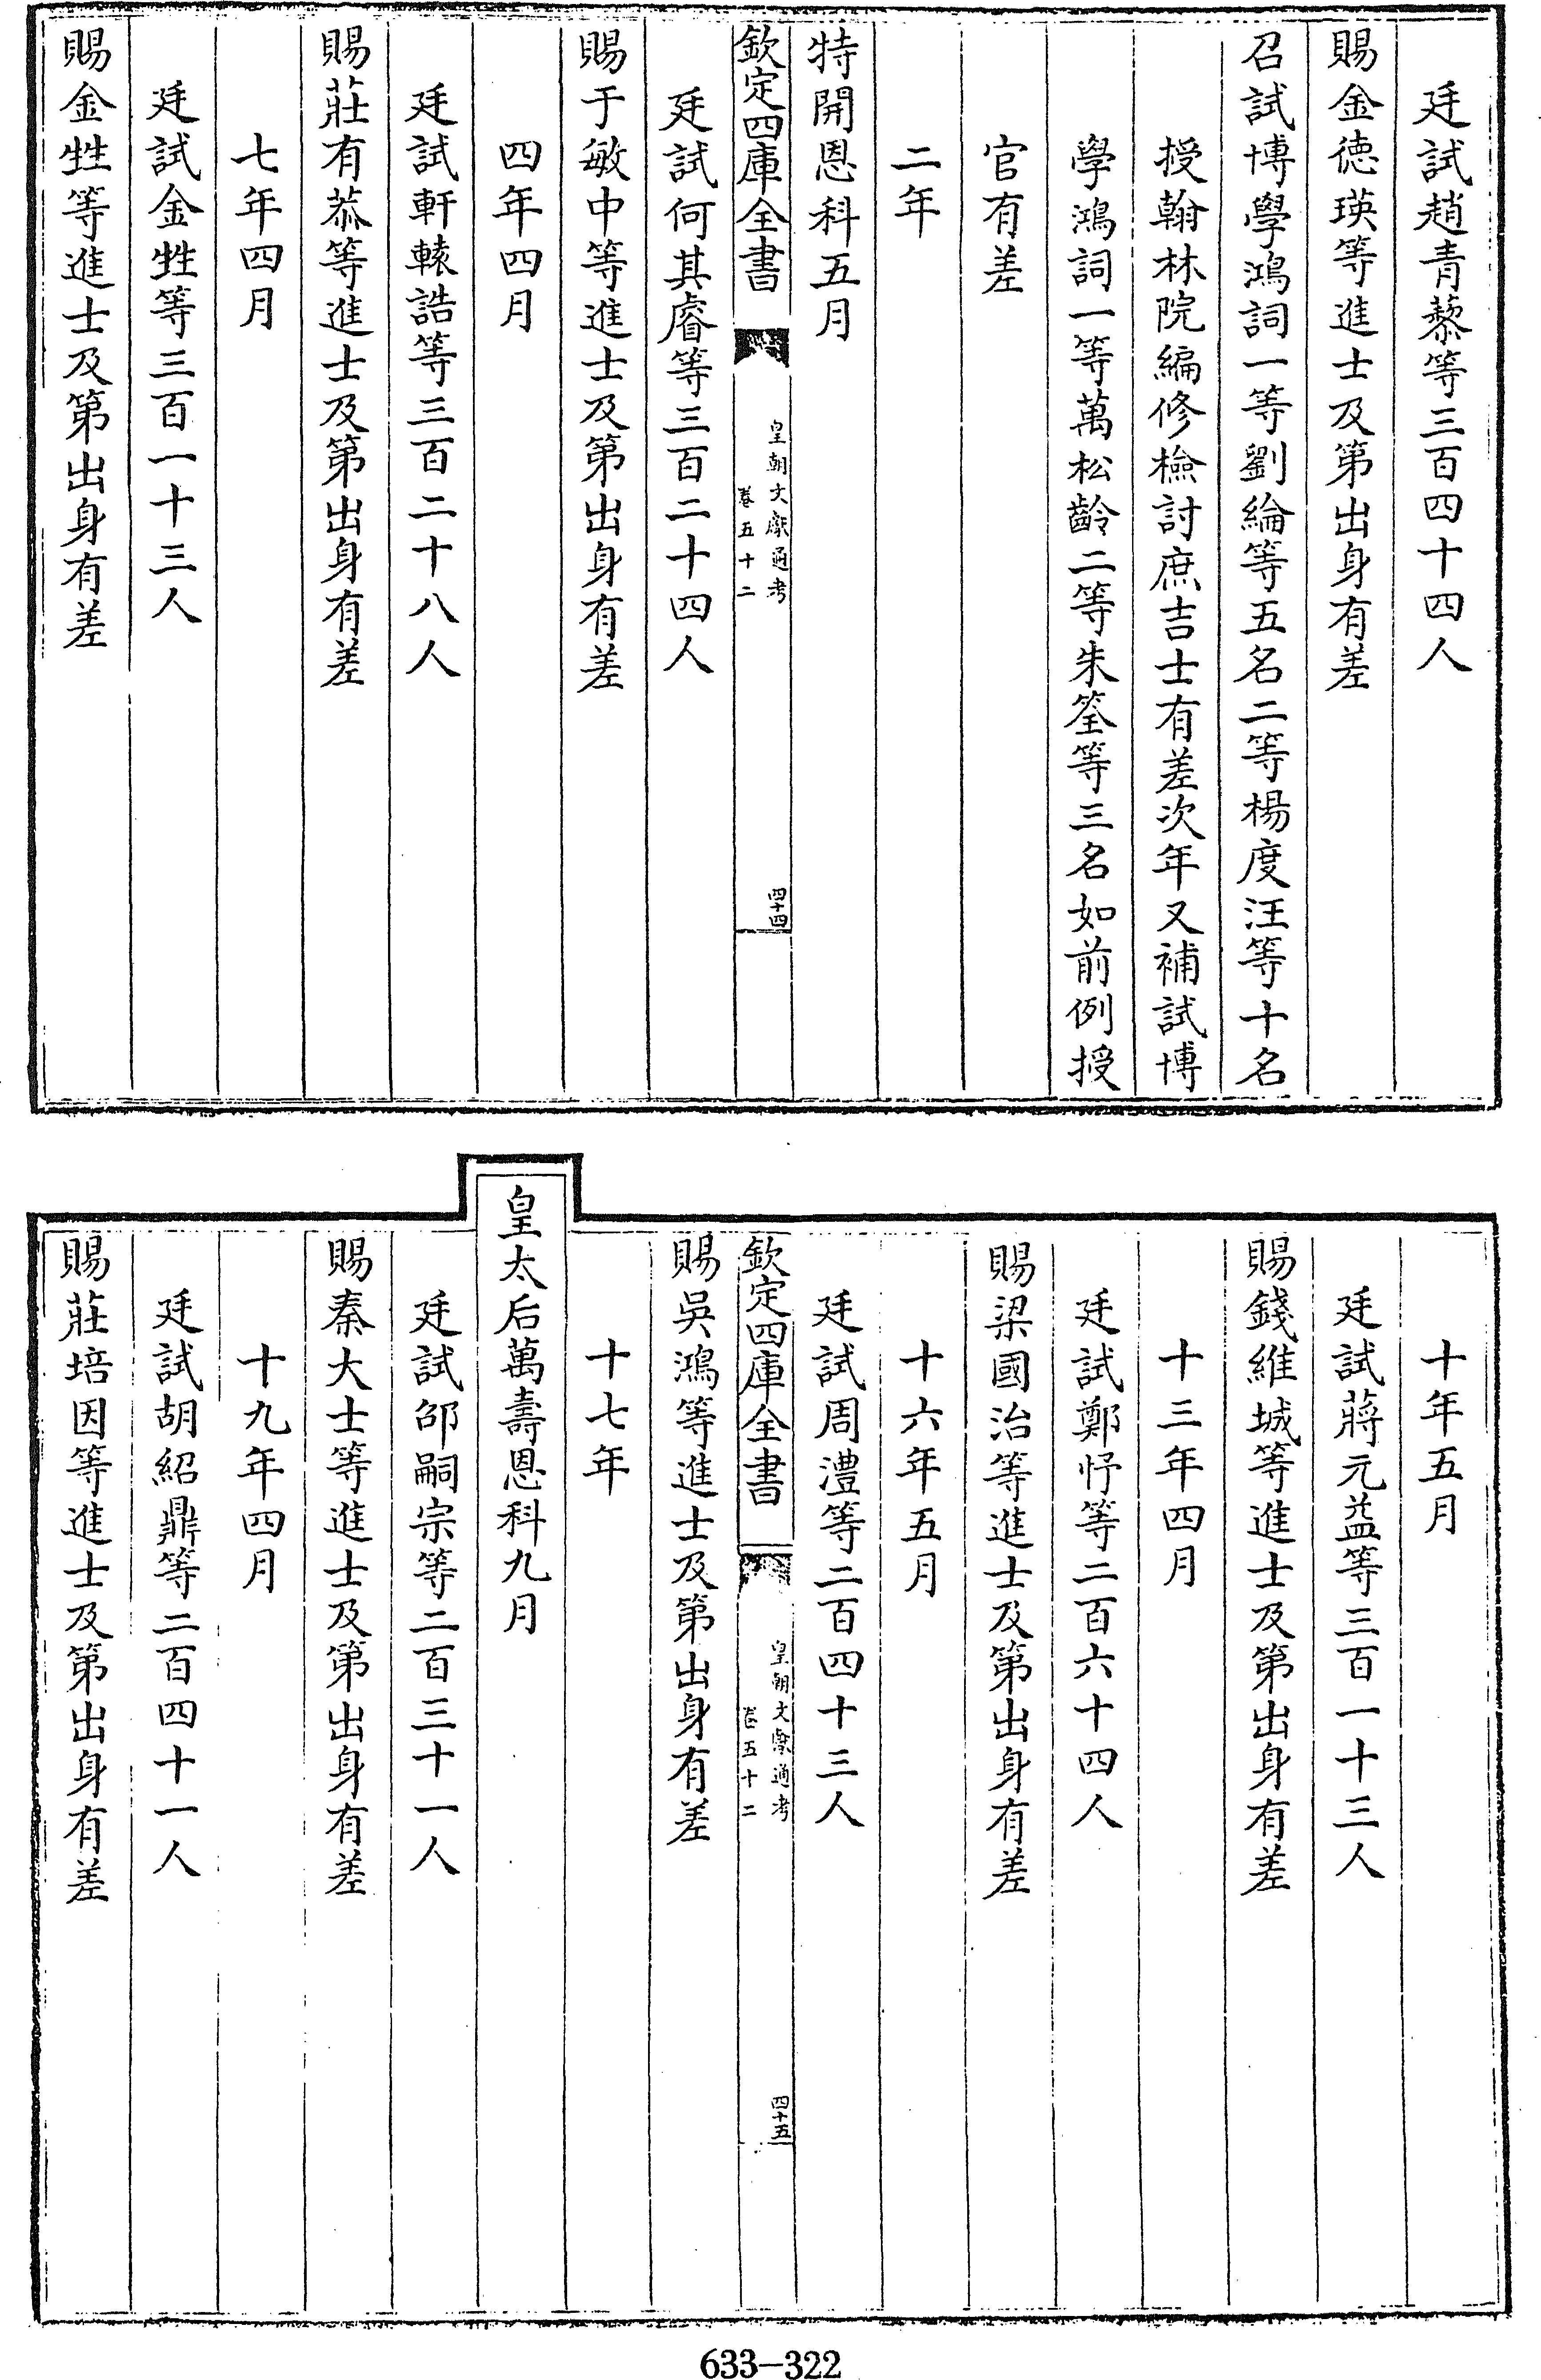 廷試趙青藜等三百四十四人
賜金徳瑛等進士及第出身有差
召試博學鴻詞一等劉綸等五名二等楊度汪等十名
授翰林院編修檢討庶吉士有差次年又補試博
學鴻詞一等萬松齡二等朱筌等三名如前例授
官有差
二年
特開恩科五月
欽定四庫全書
皇朝文獻通考
卷五十二
四十四
廷試何其睿等三百二十四人
賜于敏中等進士及第出身有差
四年四月
廷試軒轅誥等三百二十八人
賜莊有恭等進士及第出身有差
七年四月
廷試金甡等三百一十三人
賜金甡等進士及第出身有差
十年五月
廷試蔣元益等三百一十三人
賜錢維城等進士及第出身有差
十三年四月
廷試鄭忬等二百六十四人
賜梁國治等進士及第出身有差
十六年五月
廷試周澧等二百四十三人
欽定四庫全書
皇朝文獻通考
卷五十二
四十五
賜吳鴻等進士及第出身有差
十七年
皇太后萬壽恩科九月
廷試邵嗣宗等二百三十一人
賜秦大士等進士及第出身有差
十九年四月
廷試胡紹鼎等二百四十一人
賜莊培因等進士及第出身有差
633-322